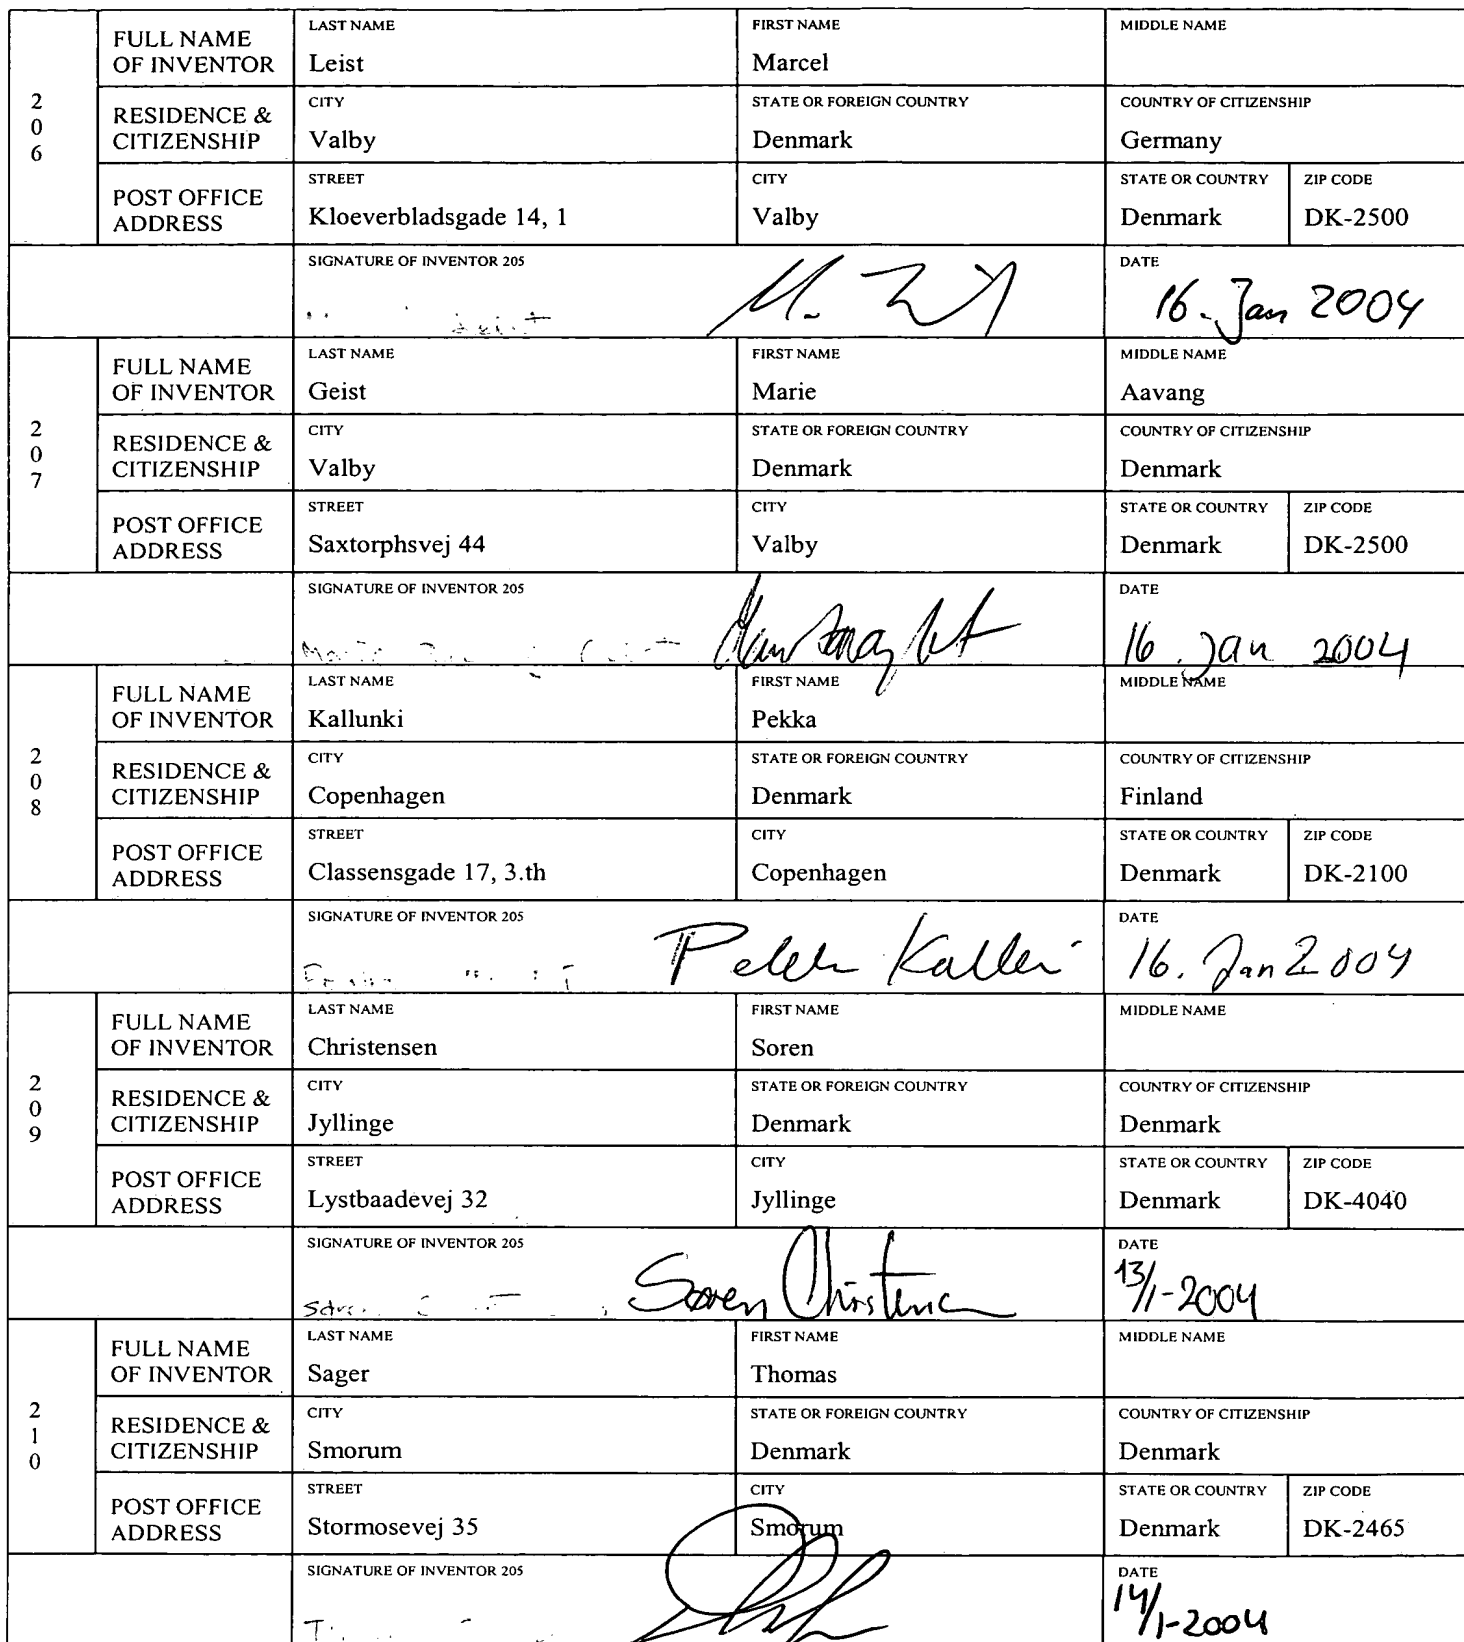 206
FULL NAME OF INVENTOR
LAST NAME Leist
FIRST NAME Marcel
MIDDLE NAME
RESIDENCE & CITIZENSHIP
CITY Valby
STATE OR FOREIGN COUNTRY Denmark
COUNTRY OF CITIZENSHIP Germany
POST OFFICE ADDRESS
STREET Kloeverbladsgade 14, 1
CITY Valby
STATE OR COUNTRY Denmark
ZIP CODE DK-2500
SIGNATURE OF INVENTOR 205
DATE 16. Jan 2004
207
FULL NAME OF INVENTOR
LAST NAME Geist
FIRST NAME Marie
MIDDLE NAME Aavang
RESIDENCE & CITIZENSHIP
CITY Valby
STATE OR FOREIGN COUNTRY Denmark
COUNTRY OF CITIZENSHIP Denmark
POST OFFICE ADDRESS
STREET Saxtorphsvej 44
CITY Valby
STATE OR COUNTRY Denmark
ZIP CODE DK-2500
SIGNATURE OF INVENTOR 205
DATE 16. Jan 2004
208
FULL NAME OF INVENTOR
LAST NAME Kallunki
FIRST NAME Pekka
MIDDLE NAME
RESIDENCE & CITIZENSHIP
CITY Copenhagen
STATE OR FOREIGN COUNTRY Denmark
COUNTRY OF CITIZENSHIP Finland
POST OFFICE ADDRESS
STREET Classensgade 17, 3.th
CITY Copenhagen
STATE OR COUNTRY Denmark
ZIP CODE DK-2100
SIGNATURE OF INVENTOR 205
DATE 16. Jan 2004
209
FULL NAME OF INVENTOR
LAST NAME Christensen
FIRST NAME Soren
MIDDLE NAME
RESIDENCE & CITIZENSHIP
CITY Jyllinge
STATE OR FOREIGN COUNTRY Denmark
COUNTRY OF CITIZENSHIP Denmark
POST OFFICE ADDRESS
STREET Lystbaadevej 32
CITY Jyllinge
STATE OR COUNTRY Denmark
ZIP CODE DK-4040
SIGNATURE OF INVENTOR 205
DATE 13/1-2004
210
FULL NAME OF INVENTOR
LAST NAME Sager
FIRST NAME Thomas
MIDDLE NAME
RESIDENCE & CITIZENSHIP
CITY Smorum
STATE OR FOREIGN COUNTRY Denmark
COUNTRY OF CITIZENSHIP Denmark
POST OFFICE ADDRESS
STREET Stormosevej 35
CITY Smorum
STATE OR COUNTRY Denmark
ZIP CODE DK-2465
SIGNATURE OF INVENTOR 205
DATE 14/1-2004